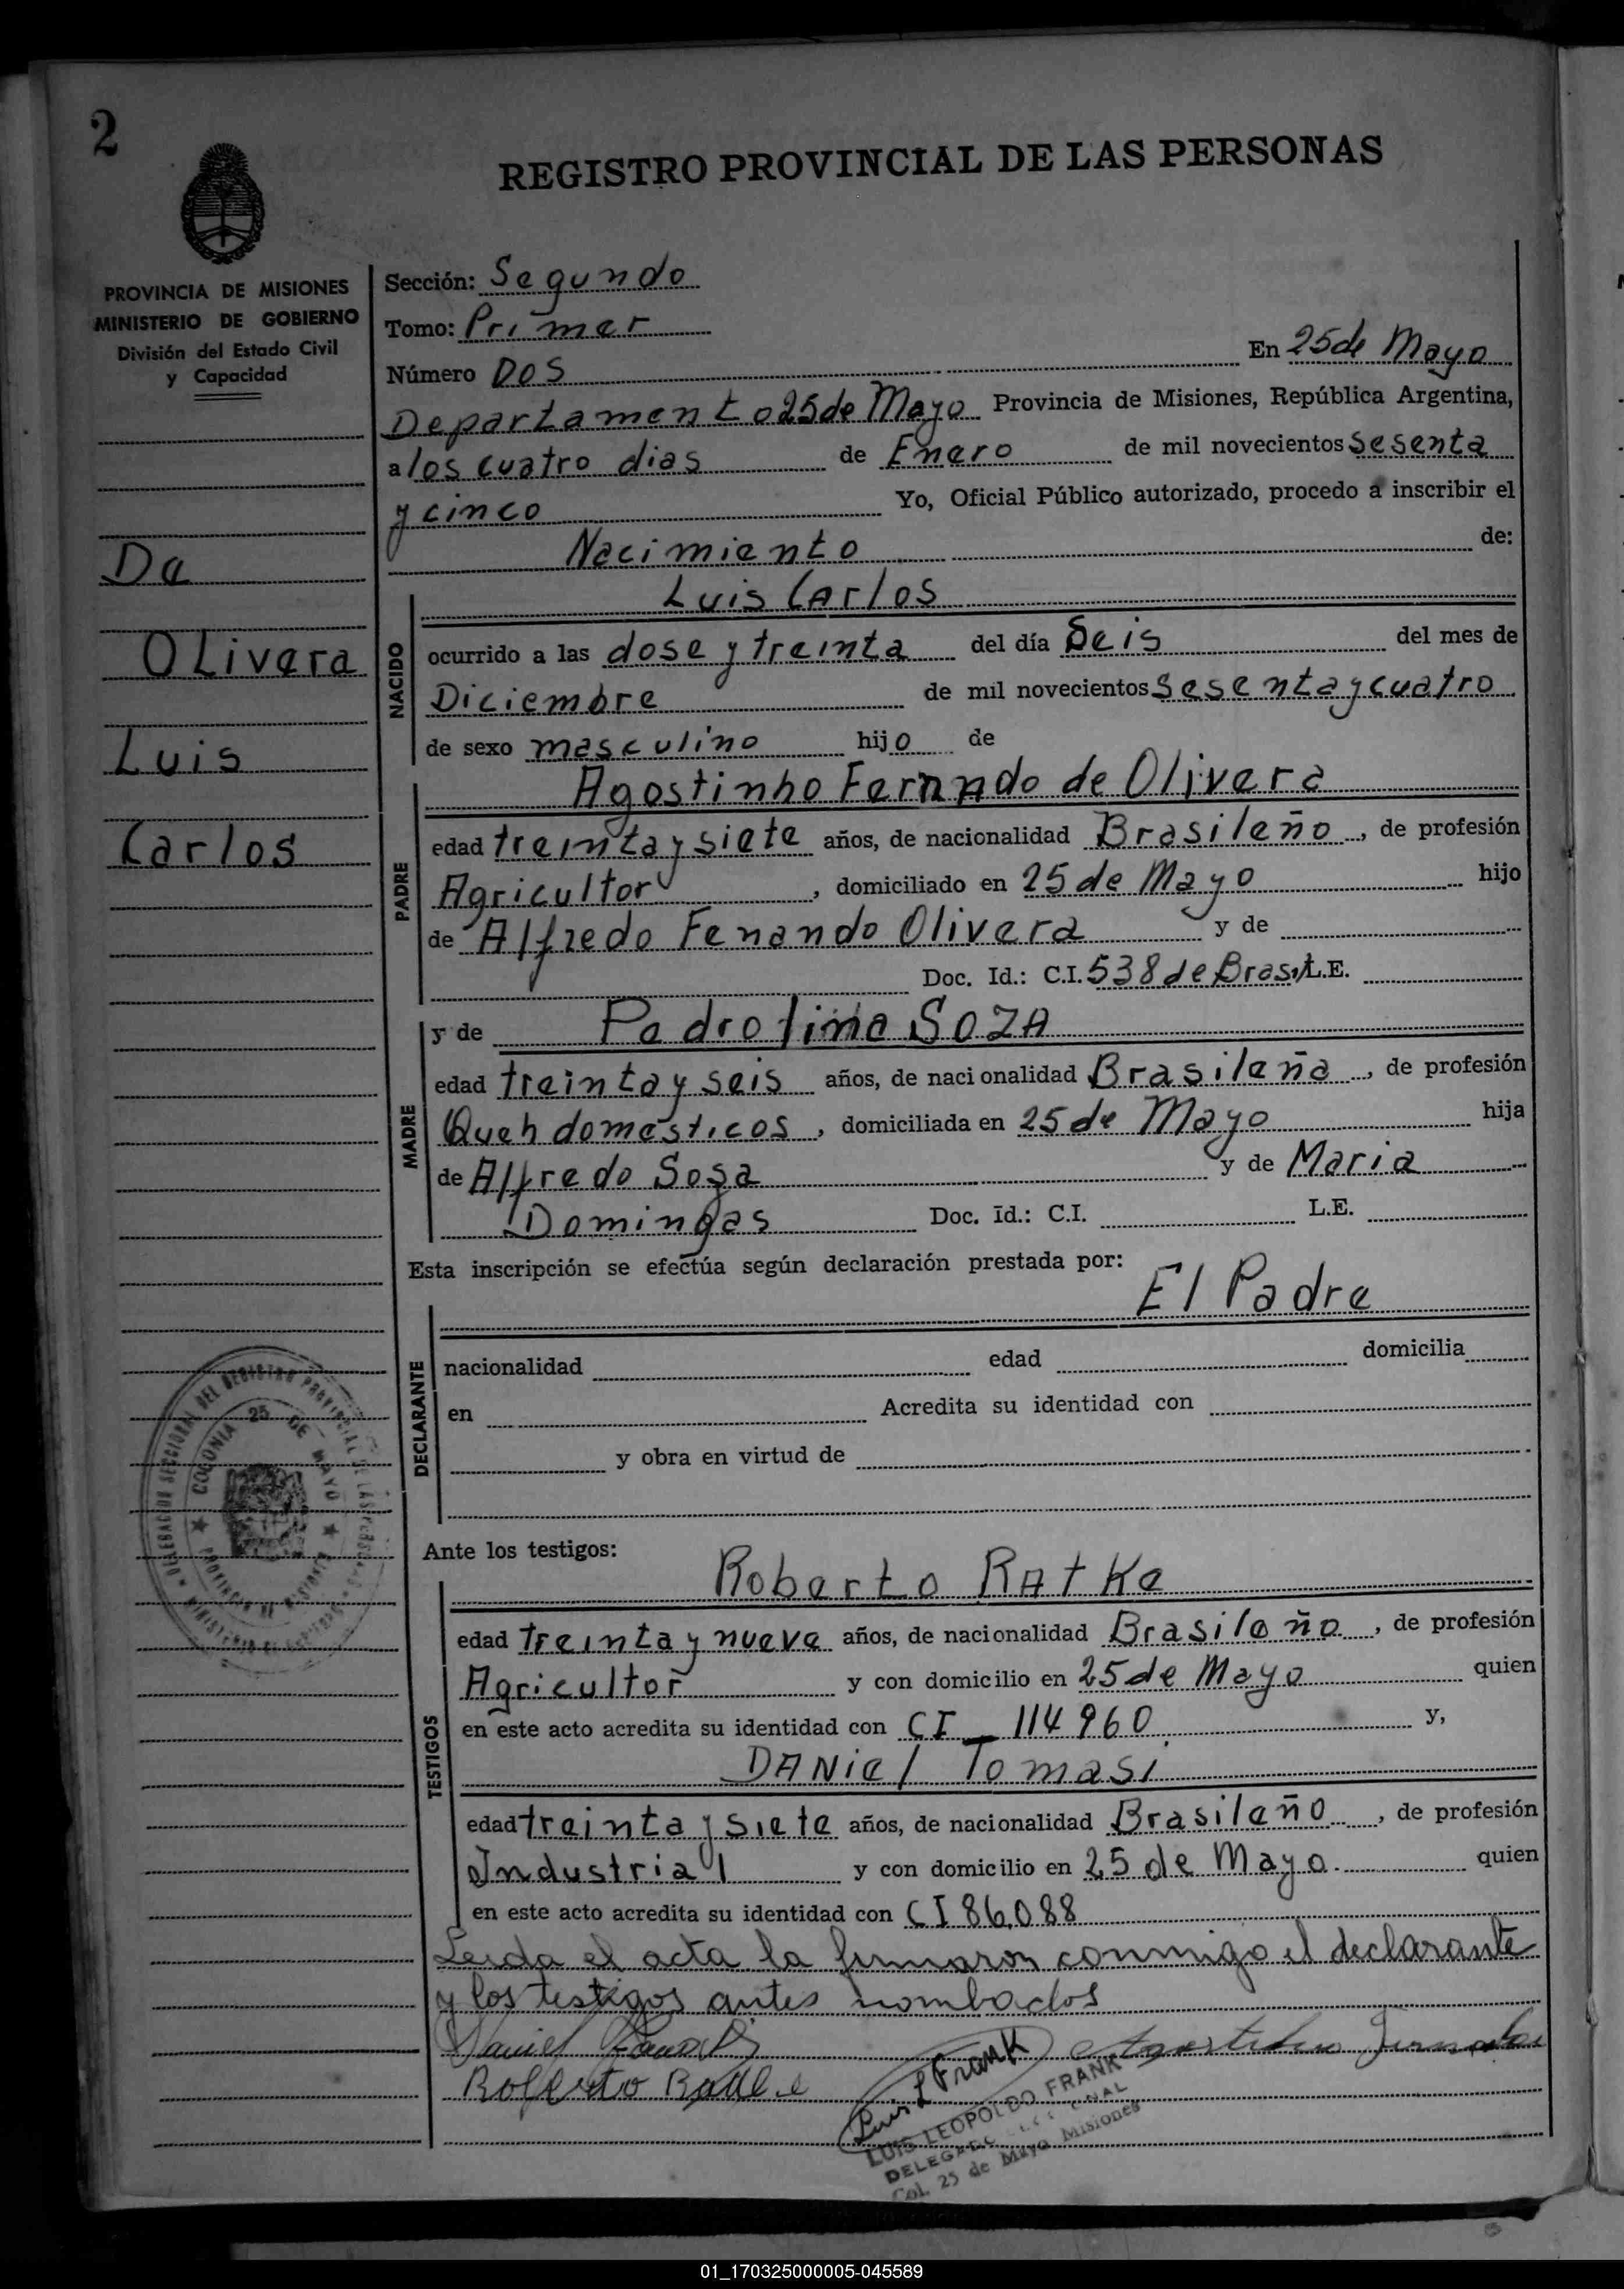 2
REGISTRO PROVINCIAL DE LAS PERSONAS
PROVINCIA DE MISIONES
MINISTERIO DE GOBIERNO
División del Estado Civil
y Capacidad
Da
Olivera
Luis
Carlos
Sección: Segundo
Tomo: Primer
Número Dos En 25 de Mayo
Departamento 25 de Mayo Provincia de Misiones, República Argentina,
a los cuatro dias de Enero de mil novecientos sesenta
y cinco Yo, Oficial Público autorizado, procedo a inscribir el
Nacimiento de:
NACIDO
Luis Carlos
ocurrido a las dose y treinta del día Seis del mes de
Diciembre de mil novecientos sesenta y cuatro
de sexo masculino hijo de
PADRE
Agostinho Fernando de Olivera
edad treinta y siete años, de nacionalidad Brasileño, de profesión
Agricultor, domiciliado en 25 de Mayo hijo
de Alfredo Fenando Olivera y de
Doc. Id.: C.I. 538 de Brasil L.E.
MADRE
y de Pedrolina SOZA
edad treinta y seis años, de nacionalidad Brasileña, de profesión
Queh domesticos, domiciliada en 25 de Mayo hija
de Alfredo Soza y de Maria
Domingas Doc. Id.: C.I. L.E.
Esta inscripción se efectúa según declaración prestada por:
El Padre
DECLARANTE
nacionalidad edad domicilia
en Acredita su identidad con
y obra en virtud de
DELEGACION SECCIONAL DEL REGISTRO PROVINCIAL DE LAS PERSONAS
COLONIA 25 DE MAYO
PROVINCIA DE MISIONES
Ante los testigos:
TESTIGOS
Roberto Ratke
edad treinta y nueve años, de nacionalidad Brasileño, de profesión
Agricultor y con domicilio en 25 de Mayo quien
en este acto acredita su identidad con CI 114960 y,
Daniel Tomasi
edad treinta y siete años, de nacionalidad Brasileño, de profesión
Industrial y con domicilio en 25 de Mayo. quien
en este acto acredita su identidad con CI 86088
Leida el acta la firmaron conmigo el declarante
y los testigos antes nombados
Daniel
Roberto
Luis L Frank
LUIS LEOPOLDO FRANK
DELEGADO
Col. 25 de Mayo Misiones
01_170325000005-045589